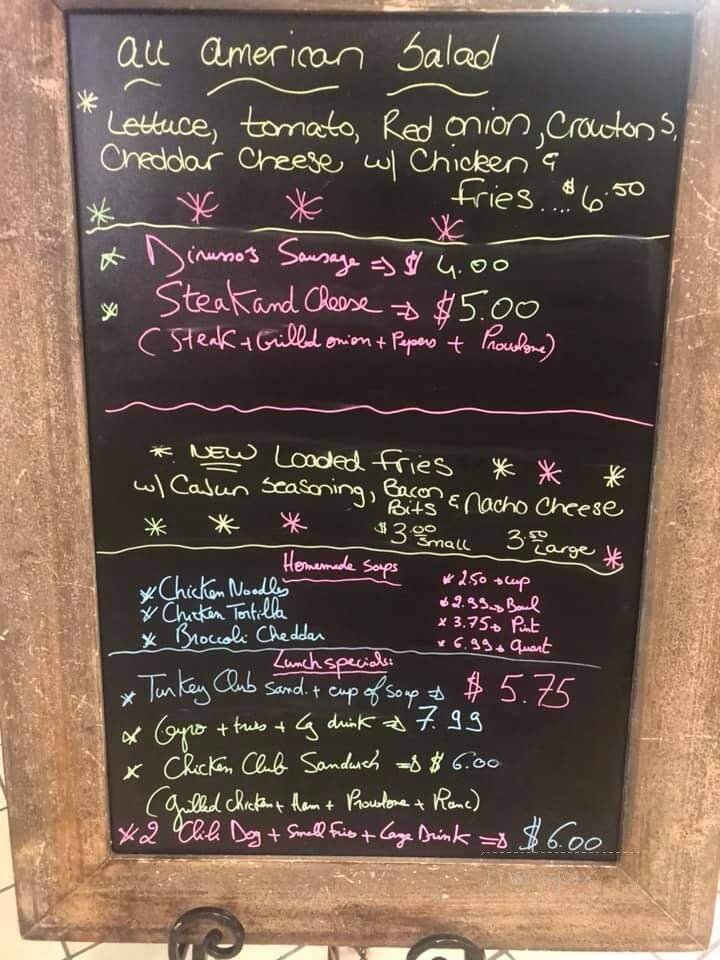 All American Salad
* Lettuce, tomato, Red onion, Croutons,
Cheddar Cheese w/ Chicken &
Fries....$6.50
* Dirusso's Sausage => $4.00
* Steak and Cheese => $5.00
(Steak + Grilled onion + Pepers + Provolone)
* NEW Loaded Fries
w/ Cajun Seasoning, Bacon Bits & Nacho Cheese
$3.00 Small 3.50 Large
Homemade Soups
* Chicken Noodles
* Chicken Tortilla
* Broccoli Cheddar
* 2.50 → cup
* 2.99 → Bowl
* 3.75 → Pint
* 6.99 → Quart
Lunch specials:
* Turkey Club sand. + cup of soup => $5.75
* Gyro + fries + Lg drink => 7.99
* Chicken Club Sandwich => $6.00
(Grilled chicken + Ham + Provolone + Ranc)
* 2 Chili Dog + Small Fries + Large Drink => $6.00